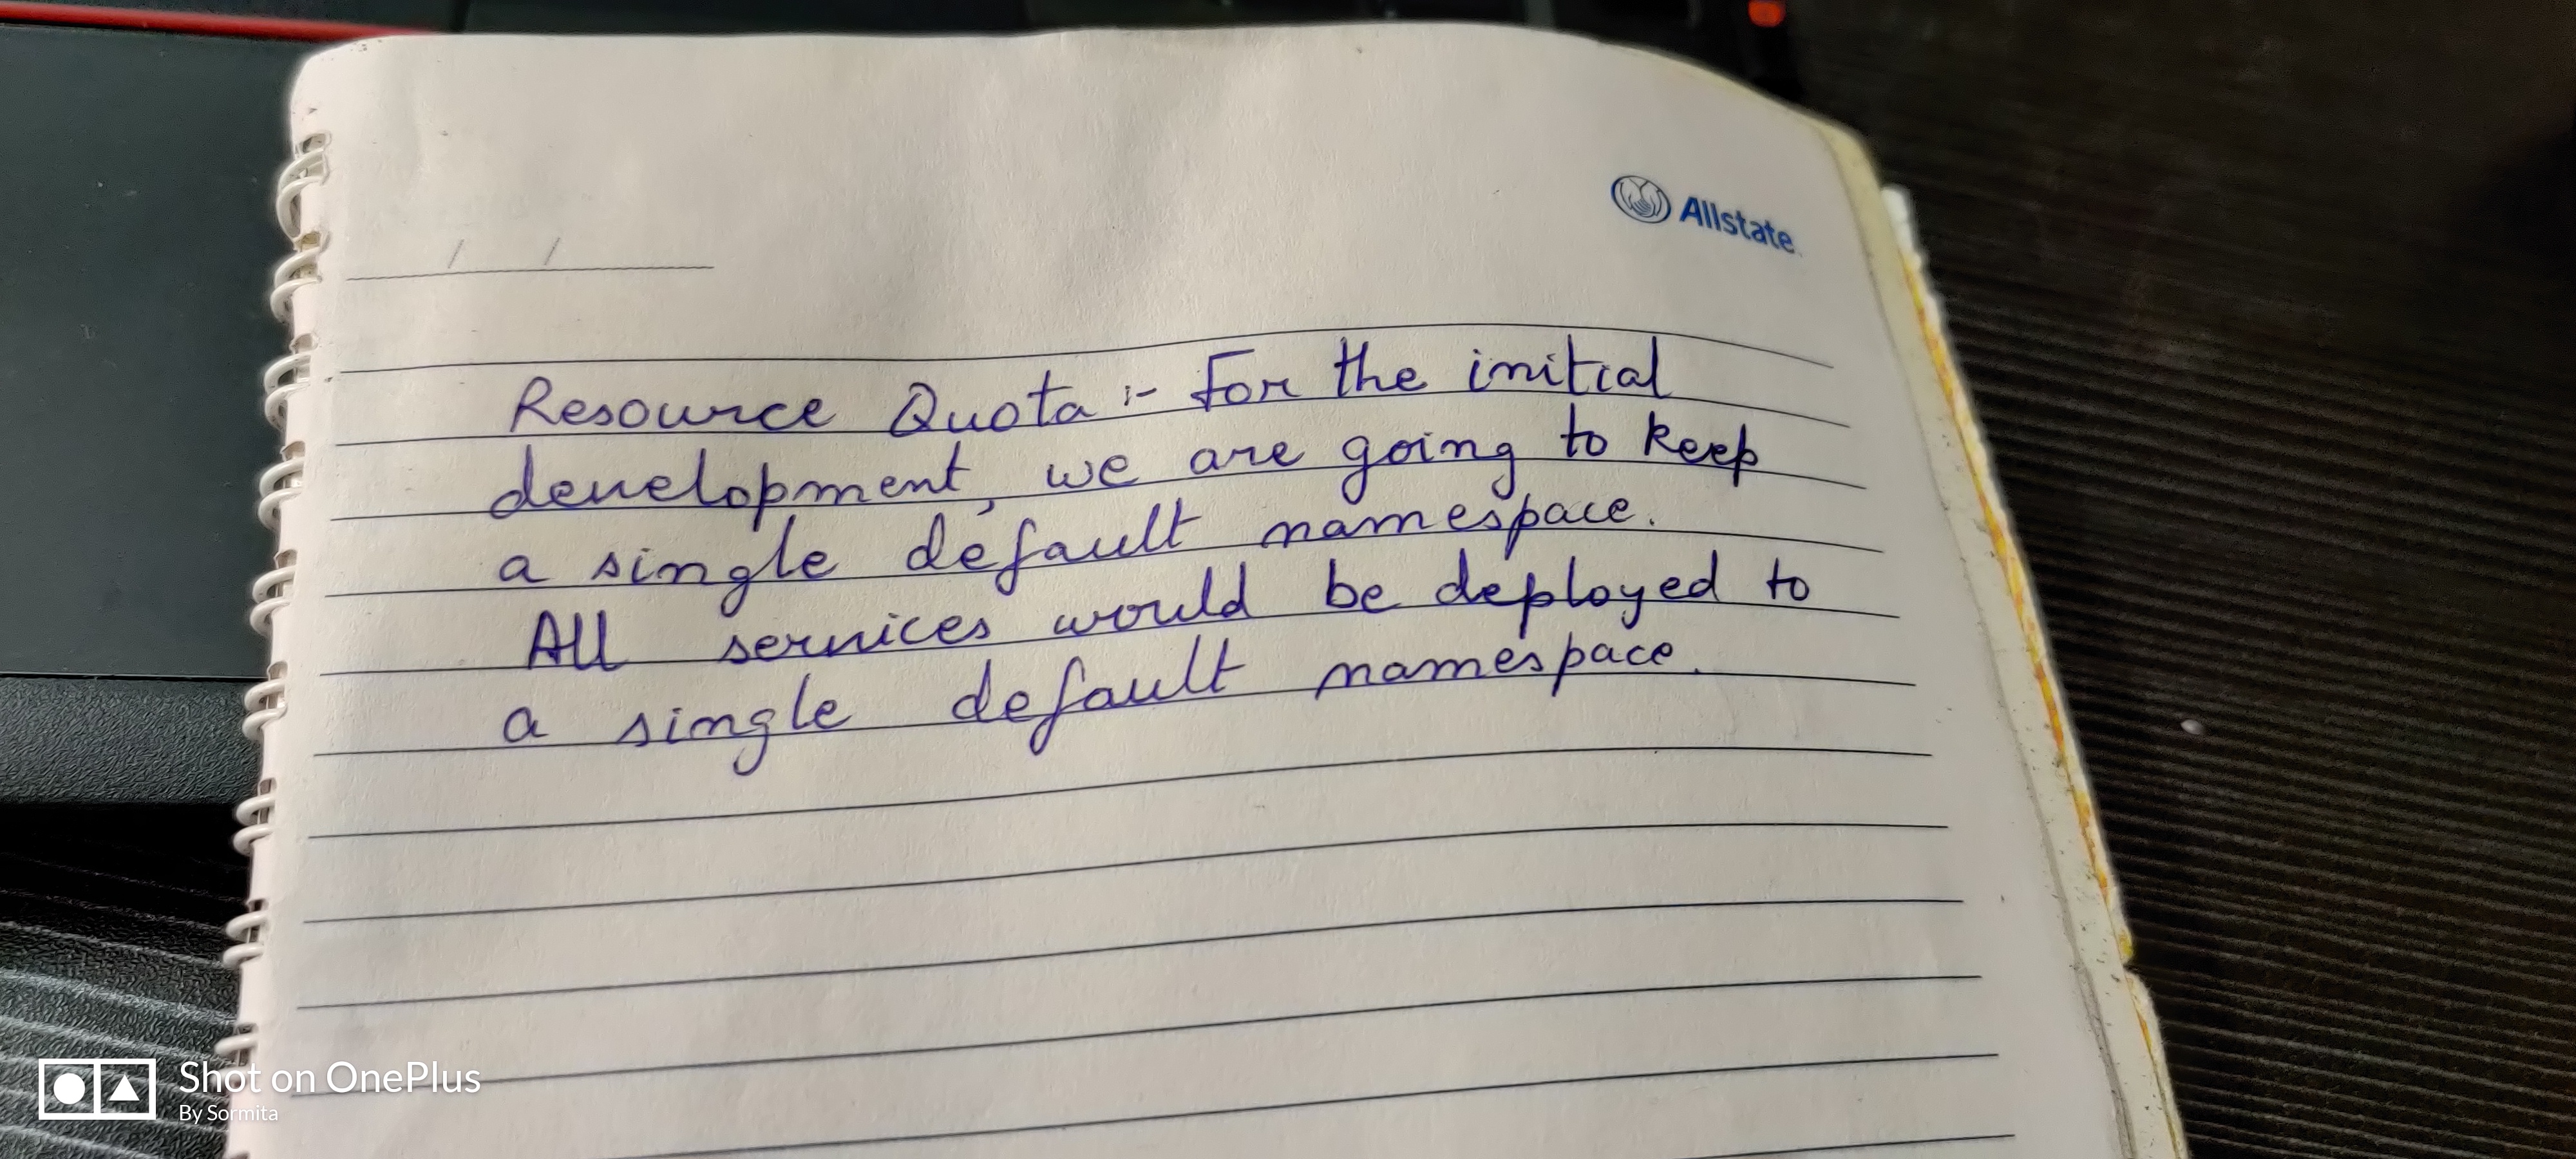 Allstate
/ /
Resource Quota :- For the initial
development, we are going to keep
a single default namespace.
All services would be deployed to
a single default namespace.
Shot on OnePlus
By Sormita